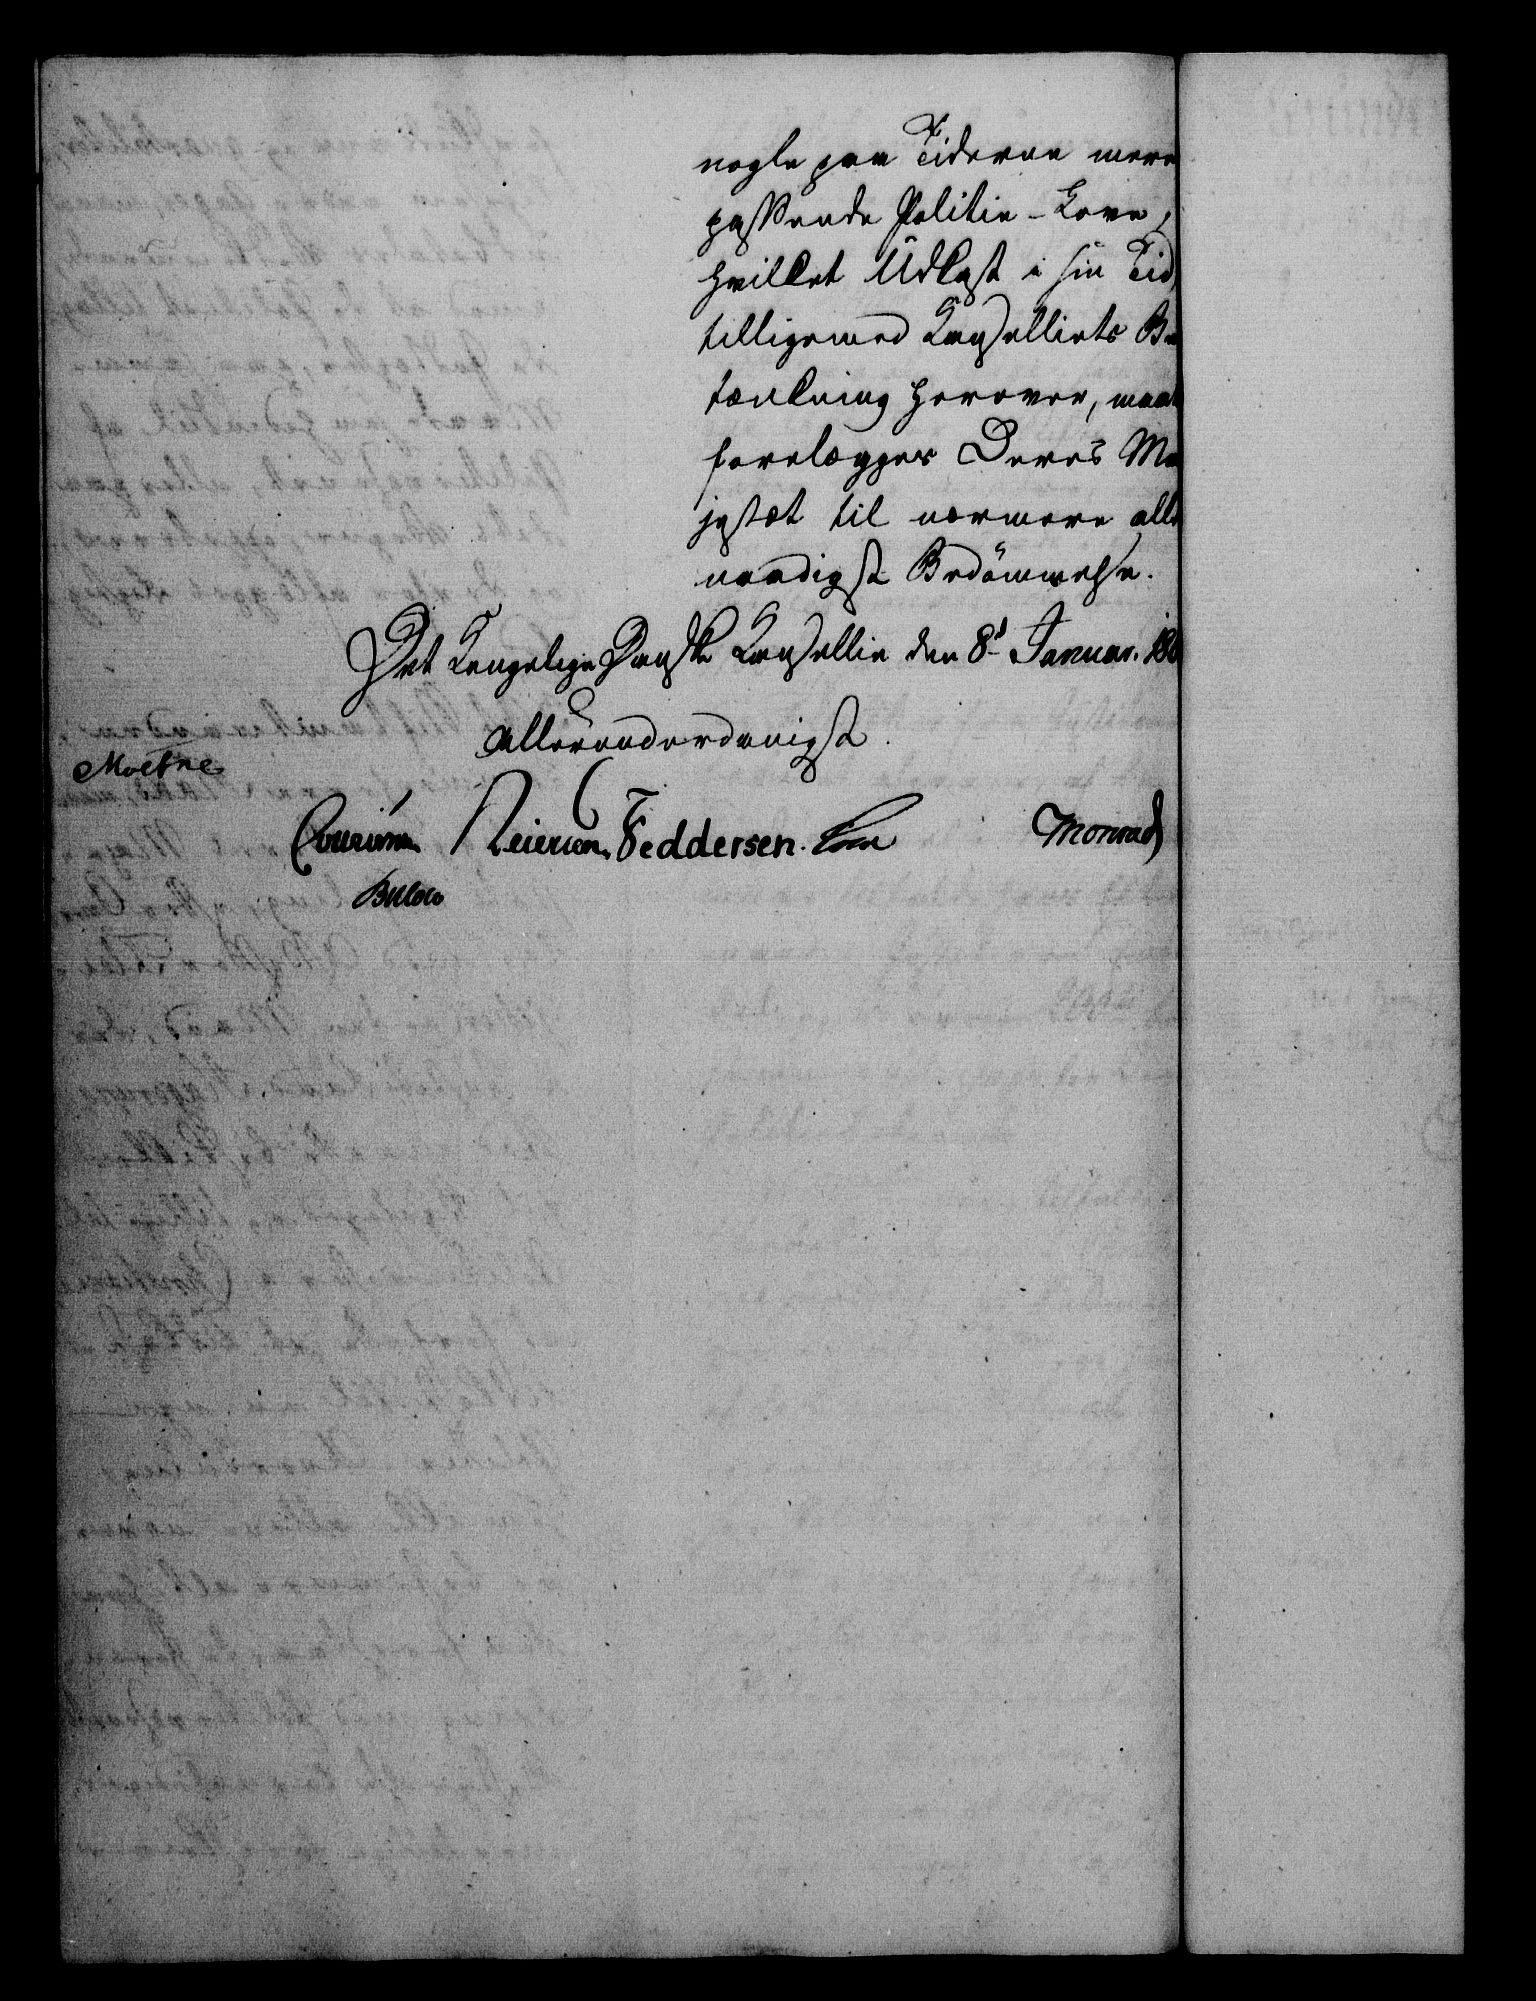 nogle paa Tiderne mere
passende Politie-Love,
hvilket Udkast i sin Tid,
tilligemed Cancelliets Be
tænkning herover, maat
forelægges Deres Ma
jestæt til nærmere aller
naadigst Bedömmelse.
Det Kongelige Danske Cancellie den 8d Januar. 180
Allerunderdanigst.
Moesne
Feddersen. Monrad
Bülow